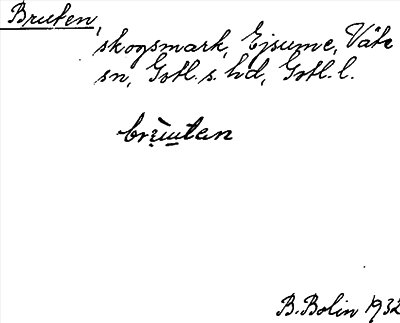 Bruten,
skogsmark, Ejsume, Väte
sn, Gotl. s. hd, Gotl. l.
brèu̠tan
B. Bolin 1932